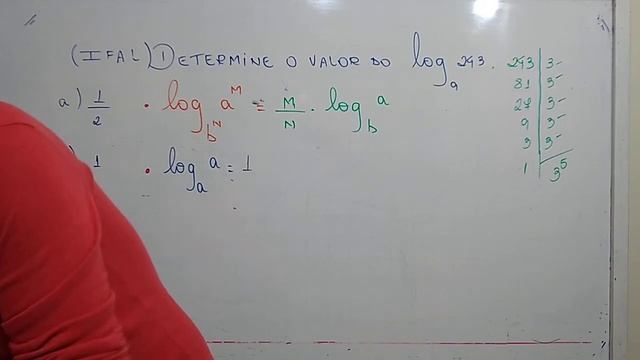 (IFAL) 1 DETERMINE O VALOR DO log₉ 243.
a) 1/2
• log_{b^N} a^M = M/N . log_b a
) 1
• log_a a = 1
243 | 3
81 | 3
27 | 3
9 | 3
3 | 3
1 | 3⁵